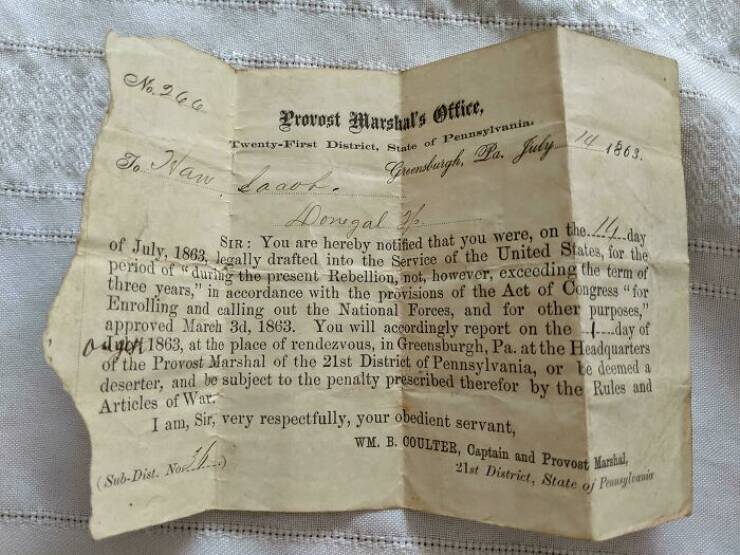 No. 266
Provost Marshal's Office,
Twenty-First District, State of Pennsylvania.
Greensburgh, Pa. July 14 1863.
To Haw Jacob.
Donegal Tp.
SIR: You are hereby notified that you were, on the 14 day
of July, 1863, legally drafted into the Service of the United States, for the
period of "during the present Rebellion, not, however, exceeding the term of
three years," in accordance with the provisions of the Act of Congress "for
Enrolling and calling out the National Forces, and for other purposes,"
approved March 3d, 1863. You will accordingly report on the 1 day of
1863, at the place of rendezvous, in Greensburgh, Pa. at the Headquarters
of the Provost Marshal of the 21st District of Pennsylvania, or be deemed a
deserter, and be subject to the penalty prescribed therefor by the Rules and
Articles of War.
I am, Sir, very respectfully, your obedient servant,
WM. B. COULTER, Captain and Provost Marshal,
21st District, State of Pennsylvania
(Sub-Dist. No. )